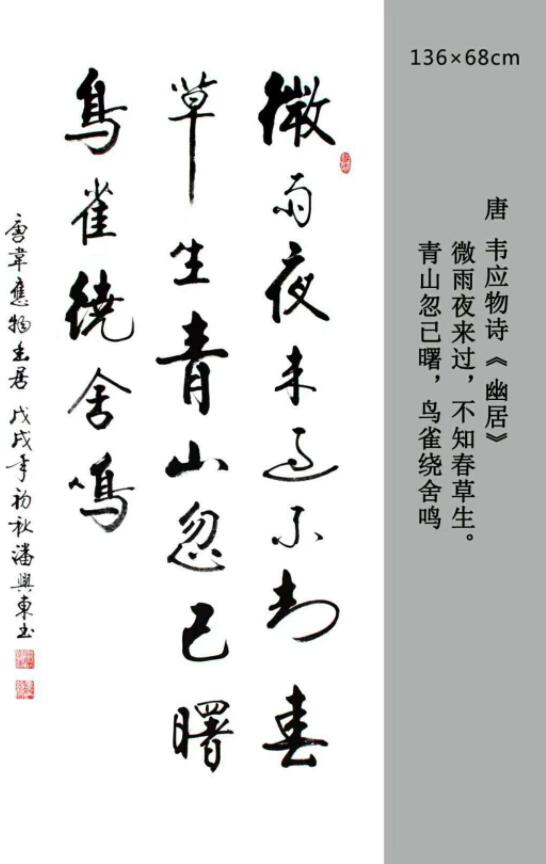 微雨夜来过不知春
草生青山忽已曙
鳥雀繞舍鳴
唐韋應物幽居 戊戌年初秋潘興東书
136×68cm
唐 韦应物诗《幽居》
微雨夜来过，不知春草生。
青山忽已曙，鸟雀绕舍鸣